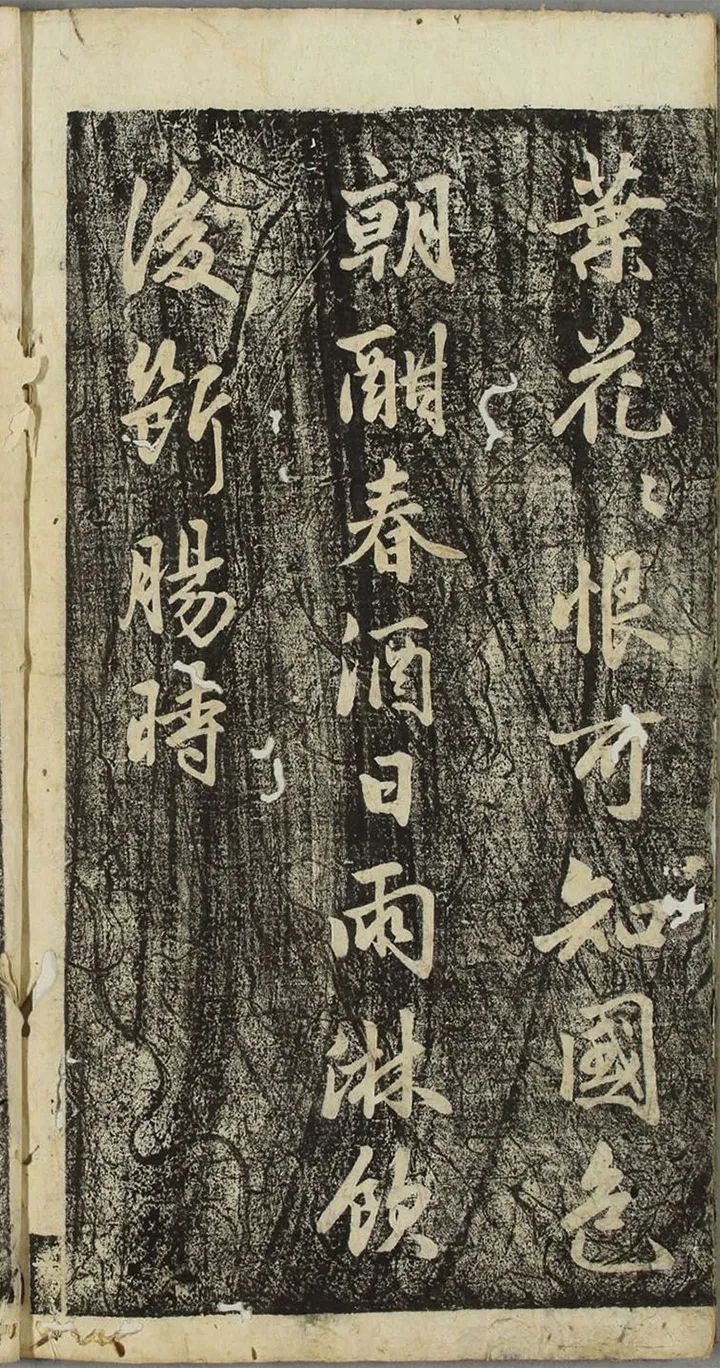 葉花〻恨可知國色
朝酣春酒日雨淋飲
後斷腸時